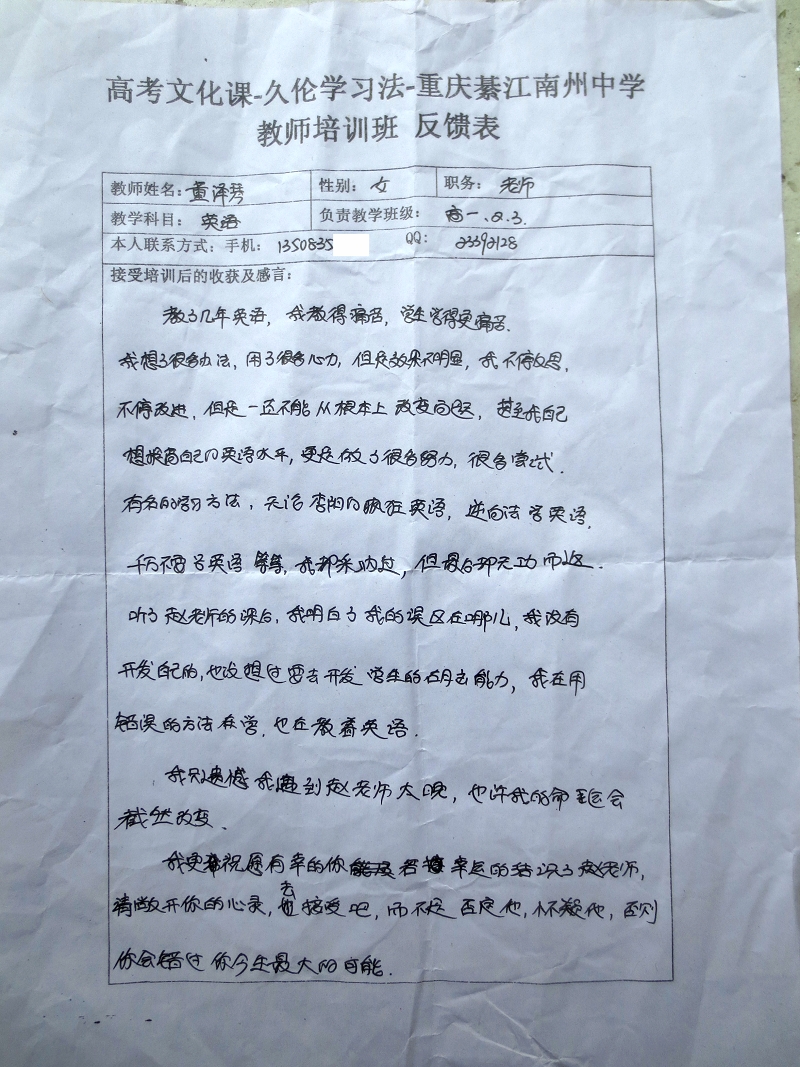 高考文化课-久伦学习法-重庆綦江南州中学
教师培训班 反馈表
教师姓名：董泽琴 性别：女 职务：老师
教学科目：英语 负责教学班级：高一.2.3.
本人联系方式：手机：1350835 QQ：23392128
接受培训后的收获及感言：
教了几年英语，我教得痛苦，学生学得更痛苦.
我想了很多办法，用了很多心力，但是效果不明显，我不停反思，
不停改进，但是一直不能从根本上改变问题，甚至我自己
想提高自己的英语水平，更是做了很多努力，很多尝试.
有名的学习方法，无论李阳的疯狂英语，逆向法学英语，
千万不要学英语 等等，我都采纳过，但最后都无功而返.
听了赵老师的课后，我明白了我的误区在哪儿，我没有
开发自己的，也没想过要去开发学生的右脑去能力，我在用
错误的方法在学，也在教着英语.
我只遗憾我遇到赵老师太晚，也许我的命运会
截然改变.
我更祝愿有幸的你若幸运的结识了赵老师，
请敞开你的心灵，去接受吧，而不是否定他，怀疑他，否则
你会错过你今生最大的可能.